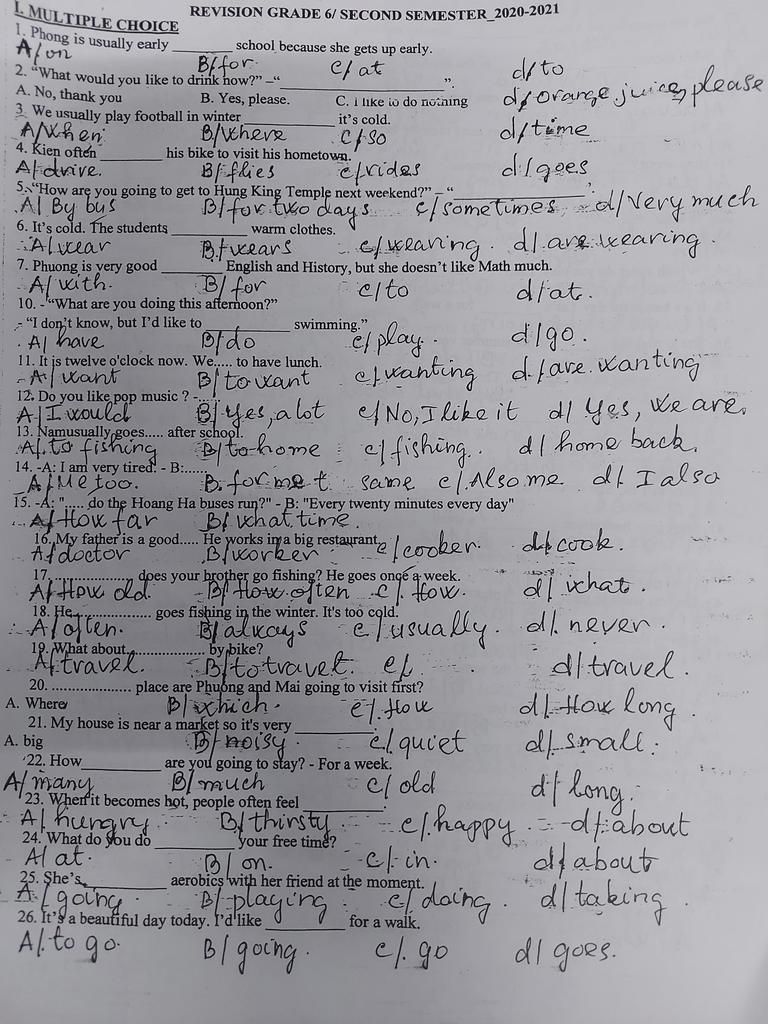 REVISION GRADE 6/ SECOND SEMESTER_2020-2021
I. MULTIPLE CHOICE
1. Phong is usually early ________ school because she gets up early.
A/ on B/ for c/ at d/ to
2. “What would you like to drink now?” –“______________________”.
A. No, thank you B. Yes, please. C. I like to do nothing d/ orange juice, please
3. We usually play football in winter ____________ it's cold.
A/ when B/ where c/ so d/ time
4. Kien often ________ his bike to visit his hometown.
A/ drive. B/ flies c/ rides d/ goes
5. “How are you going to get to Hung King Temple next weekend?” – “__________________”.
A/ By bus B/ for two days c/ sometimes d/ Very much
6. It's cold. The students __________ warm clothes.
A/ wear B/ wears c/ wearing. d/ are wearing.
7. Phuong is very good ________ English and History, but she doesn't like Math much.
A/ with. B/ for c/ to d/ at.
10. - “What are you doing this afternoon?”
- “I don't know, but I'd like to ____________ swimming.”
A/ have B/ do c/ play. d/ go.
11. It is twelve o'clock now. We..... to have lunch.
A/ want B/ to want c/ wanting d/ are wanting
12. Do you like pop music ? -....
A/ I would B/ Yes, a lot c/ No, I like it d/ Yes, we are.
13. Namusually goes..... after school.
A/ to fishing B/ to home c/ fishing. d/ home back.
14. -A: I am very tired. - B:......
A/ Me too. B. for me t same c/ Also me d/ I also
15. -A: "..... do the Hoang Ha buses run?" - B: "Every twenty minutes every day"
A/ How far B/ what time.
16. My father is a good..... He works in a big restaurant.
A/ doctor B/ worker c/ cooker. d/ cook.
17. .................. does your brother go fishing? He goes once a week.
A/ How old. B/ How often c/. How. d/ what.
18. He.................. goes fishing in the winter. It's too cold.
A/ often. B/ always c/ usually. d/. never.
19. What about.................. by bike?
A/ travel. B/ to travel. c/. d/ travel.
20. ..................... place are Phuong and Mai going to visit first?
A. Where B/ which. c/. How d/. How long.
21. My house is near a market so it's very ____________.
A. big B/ noisy. c/. quiet d/. small.
22. How____________ are you going to stay? - For a week.
A/ many B/ much c/ old d/ long.
23. When it becomes hot, people often feel ____________.
A/ hungry B/ thirsty. c/. happy. d/. about
24. What do you do ____________ your free time?
A/ at. B/ on. c/. in. d/ about
25. She's ____________ aerobics with her friend at the moment.
A/ going. B/ playing c/ doing. d/ taking.
26. It's a beautiful day today. I'd like ____________ for a walk.
A/. to go. B/ going. c/. go d/ goes.